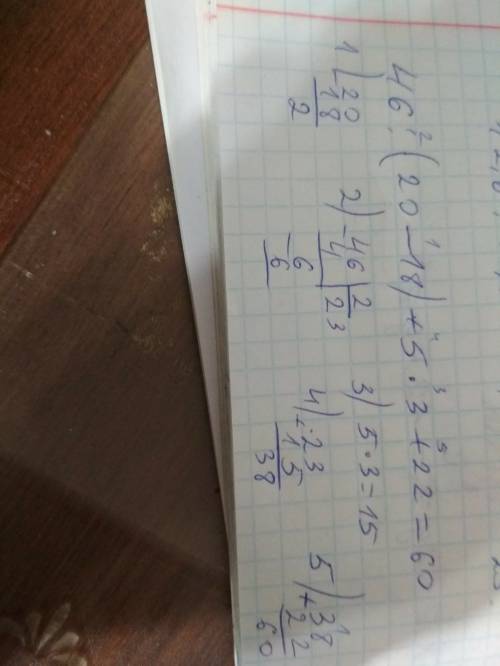 46 : (20 - 18) + 5 · 3 + 22 = 60
2 1 4 3 5
1) - 20
18
2
2) - 46 | 2
4 | 23
- 6
6
3) 5 · 3 = 15
4) + 23
15
38
5) + 38
22
60